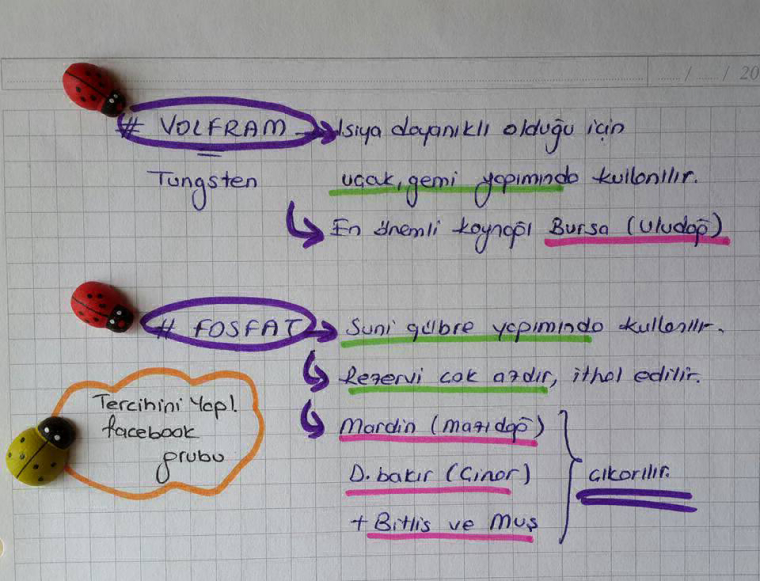 / / 20
# VOLFRAM → Isıya dayanıklı olduğu için
Tungsten uçak, gemi yapımında kullanılır.
En önemli kaynağı Bursa (Uludağ)
# FOSFAT → Suni gübre yapımında kullanılır.
Rezervi çok azdır, ithal edilir.
Mardin (Mazıdağ)
D.bakır (Çınar) çıkarılır.
+ Bitlis ve Muş
Tercihini Yap!
facebook
grubu